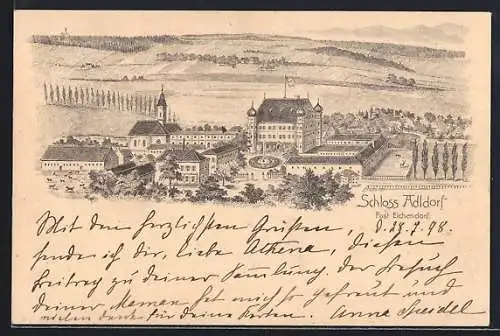 Schloss Adldorf
Post Eichendorf.
Mit den herzlichsten Grüßen, d. 28.7.98.
sende ich dir, liebe Athena, diesen
Beitrag zu deiner Samlung. Der Besuch
deiner Maman hat mich so gefreut und
vielen Dank für deine Karten. Anna Speidel